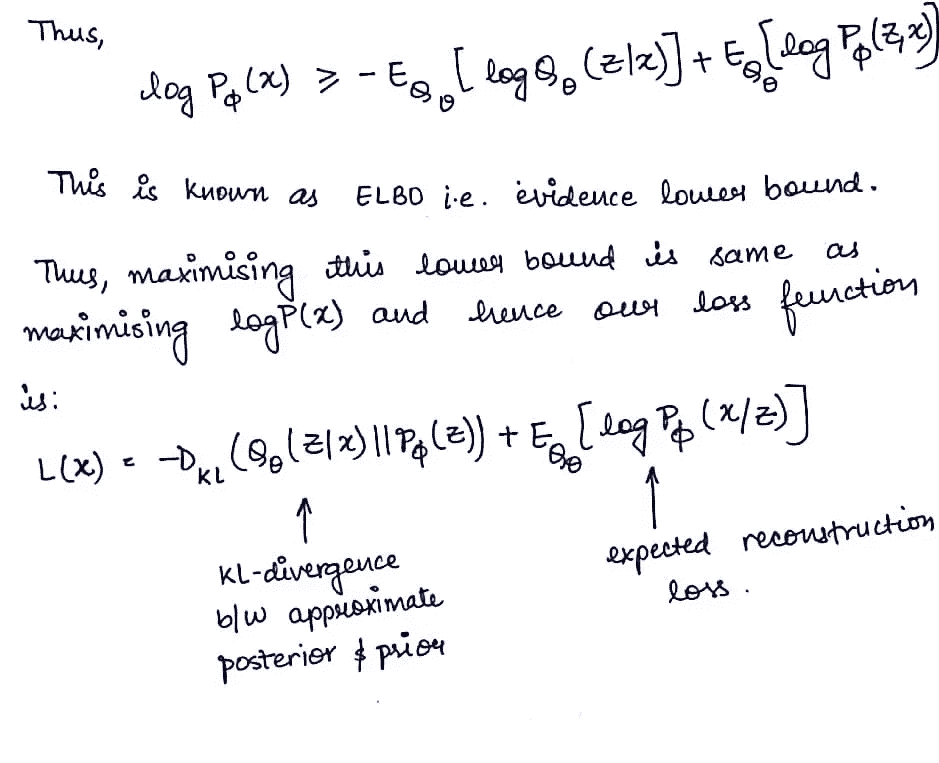 Thus,
log P_ϕ(x) ⩾ -E_{Q_θ}[log Q_θ(z|x)] + E_{Q_θ}[log P_ϕ(z,x)]
This is known as ELBO i.e. evidence lower bound.
Thus, maximising this lower bound is same as
maximising log P(x) and hence our loss function
is:
L(x) = -D_{KL}(Q_θ(z|x)||P_ϕ(z)) + E_{Q_θ}[log P_ϕ(x/z)]
↑ ↑
KL-divergence expected reconstruction
b/w approximate loss.
posterior & prior